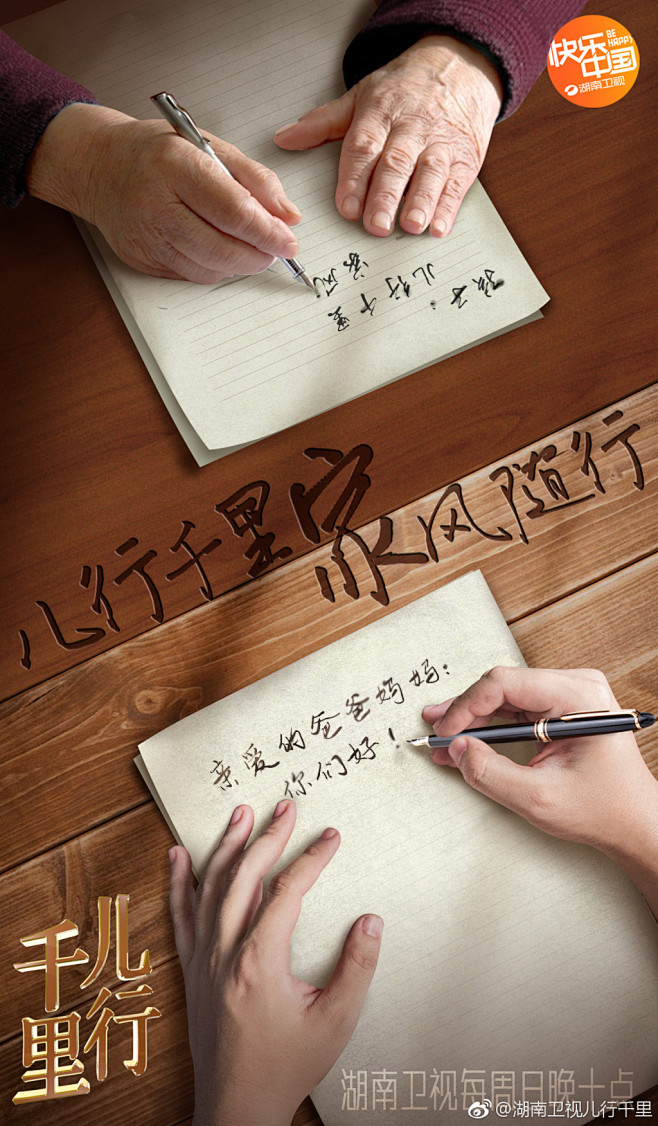 快乐
中国
BE
HAPPY
湖南卫视
孩子:
儿行千里
家风
儿行千里家风随行
亲爱的爸爸妈妈:
你们好!
儿行
千里
湖南卫视每周日晚十点
@湖南卫视儿行千里